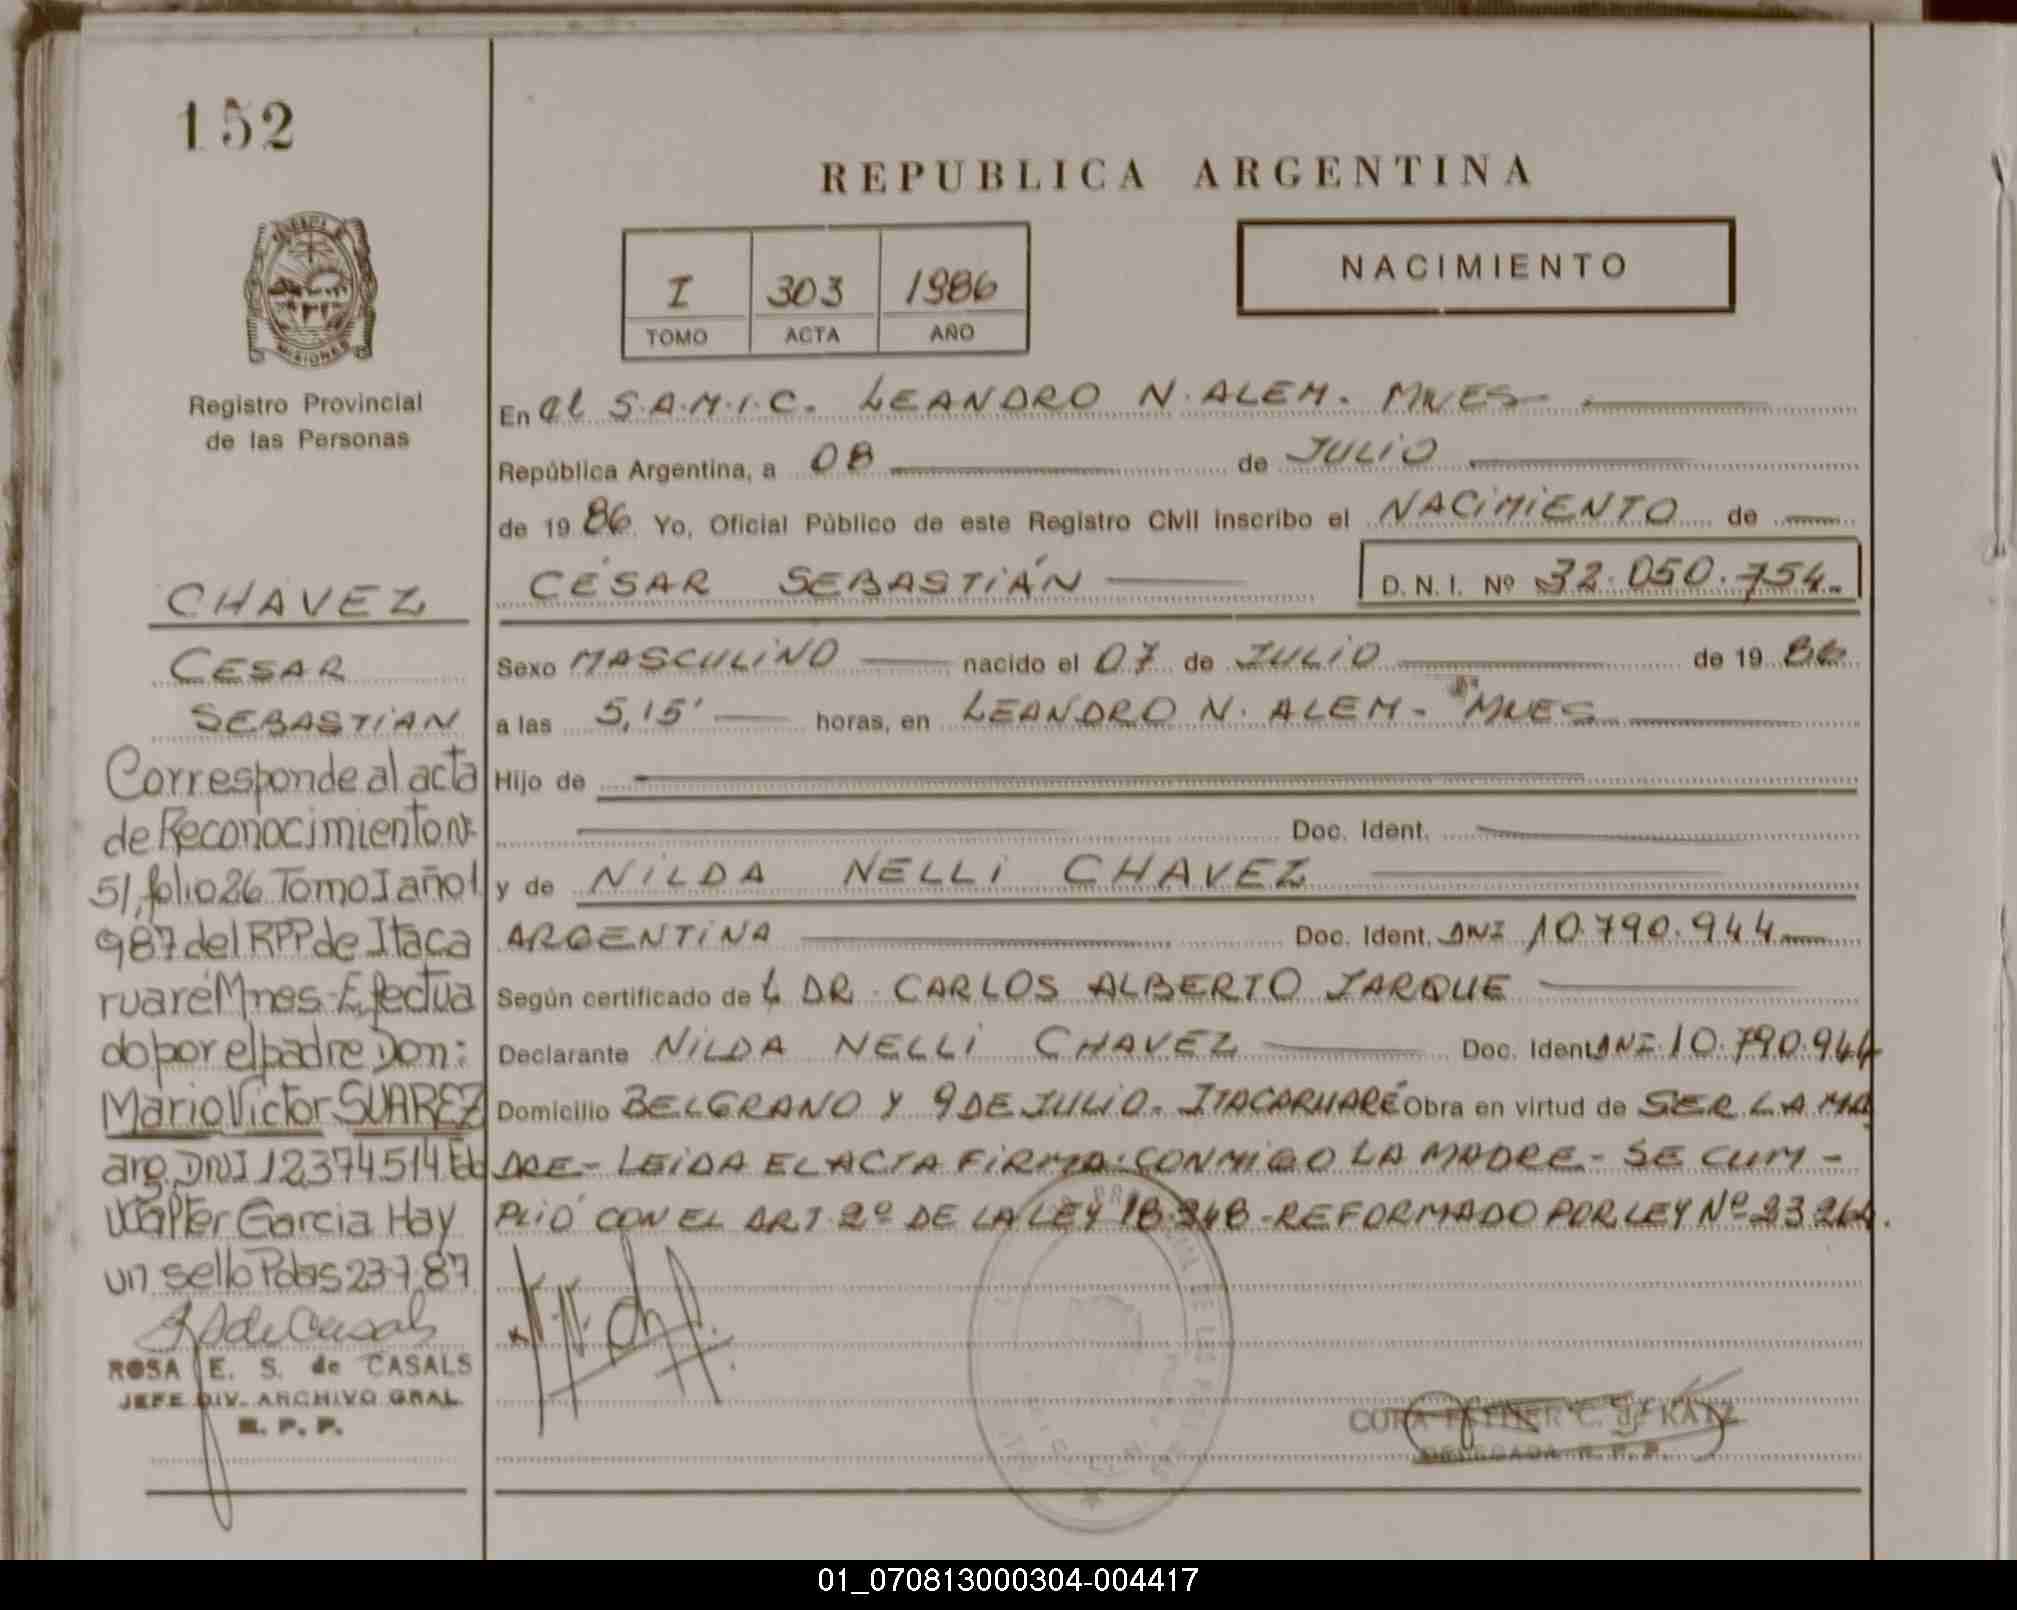 152
REPUBLICA ARGENTINA
I 303 1986
TOMO ACTA AÑO
NACIMIENTO
MISIONES
Registro Provincial
de las Personas
CHAVEZ
CESAR
SEBASTIAN
Corresponde al acta
de Reconocimiento Nº
51, folio 26 Tomo I año 1
987 del RPP de Itaca
ruaré Mnes. Efectua
do por el padre Don:
Mario Victor SUAREZ
arg. DNI 12374514
Walter Garcia Hay
un sello Pdas 23-7-87
ROSA E. S. de CASALS
JEFE DIV. ARCHIVO GRAL
R. P. P.
En el S.A.M.I.C. LEANDRO N. ALEM. MNES
República Argentina, a 08 de JULIO
de 1986 Yo, Oficial Público de este Registro Civil inscribo el NACIMIENTO de
CÉSAR SEBASTIÁN D. N. I. Nº 32.050.754.
Sexo MASCULINO nacido el 07 de JULIO de 1986
a las 5,15' horas, en LEANDRO N. ALEM - MNES
Hijo de
Doc. Ident.
y de NILDA NELLI CHAVEZ
ARGENTINA Doc. Ident. DNI 10.790.944
Según certificado de L DR. CARLOS ALBERTO JARQUE
Declarante NILDA NELLI CHAVEZ Doc. Ident. DNI 10.790.944
Domicilio BELGRANO Y 9 DE JULIO. ITACARUARÉ Obra en virtud de SER LA MA
DRE - LEIDA EL ACTA FIRMA: CONMIGO LA MADRE.- SE CUM-
PLIÓ CON EL ART. 2º DE LA LEY 18.248 - REFORMADO POR LEY Nº 23.264.
N. N. Ch
CORA ESTHER C. de KATZ
DELEGADA R. P. P.
01_070813000304-004417